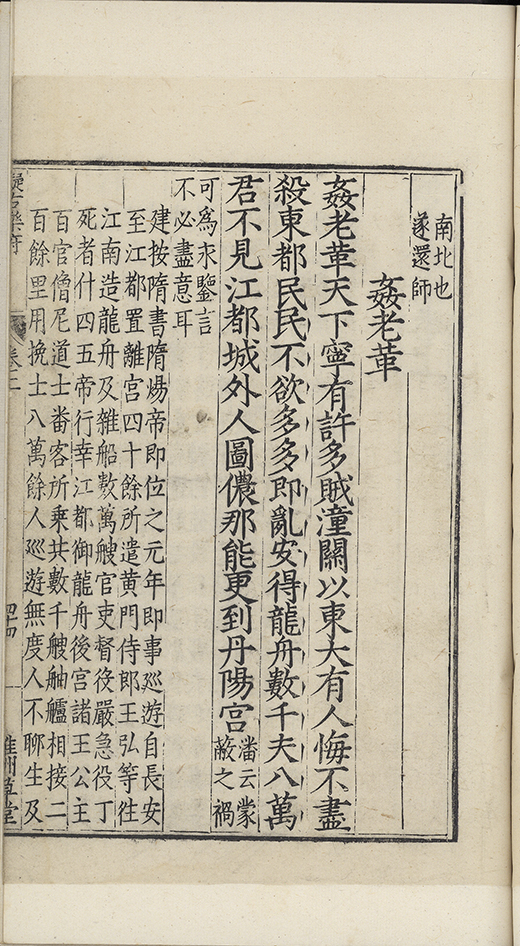 南北也
遂還師
姦老革
姦老革天下寧有許多賊潼關以東大有人悔不盡
殺東都民民不欲多多即亂安得龍舟數千夫八萬
君不見江都城外人圖儂那能更到丹陽宮
潘云蒙
蔽之禍
可爲永鑒言
不必盡意耳
建按隋書隋煬帝即位之元年即事廵游自長安
至江都置離宮四十餘所遣黄門侍郎王弘等徃
江南造龍舟及雜船數萬艘官吏督役嚴急役丁
死者什四五帝行幸江都御龍舟後宮諸王公主
百官僧尼道士畨客所乗共數千艘舳艫相接二
百餘里用挽士八萬餘人廵遊無度人不聊生及
擬古樂府
卷二
四十四